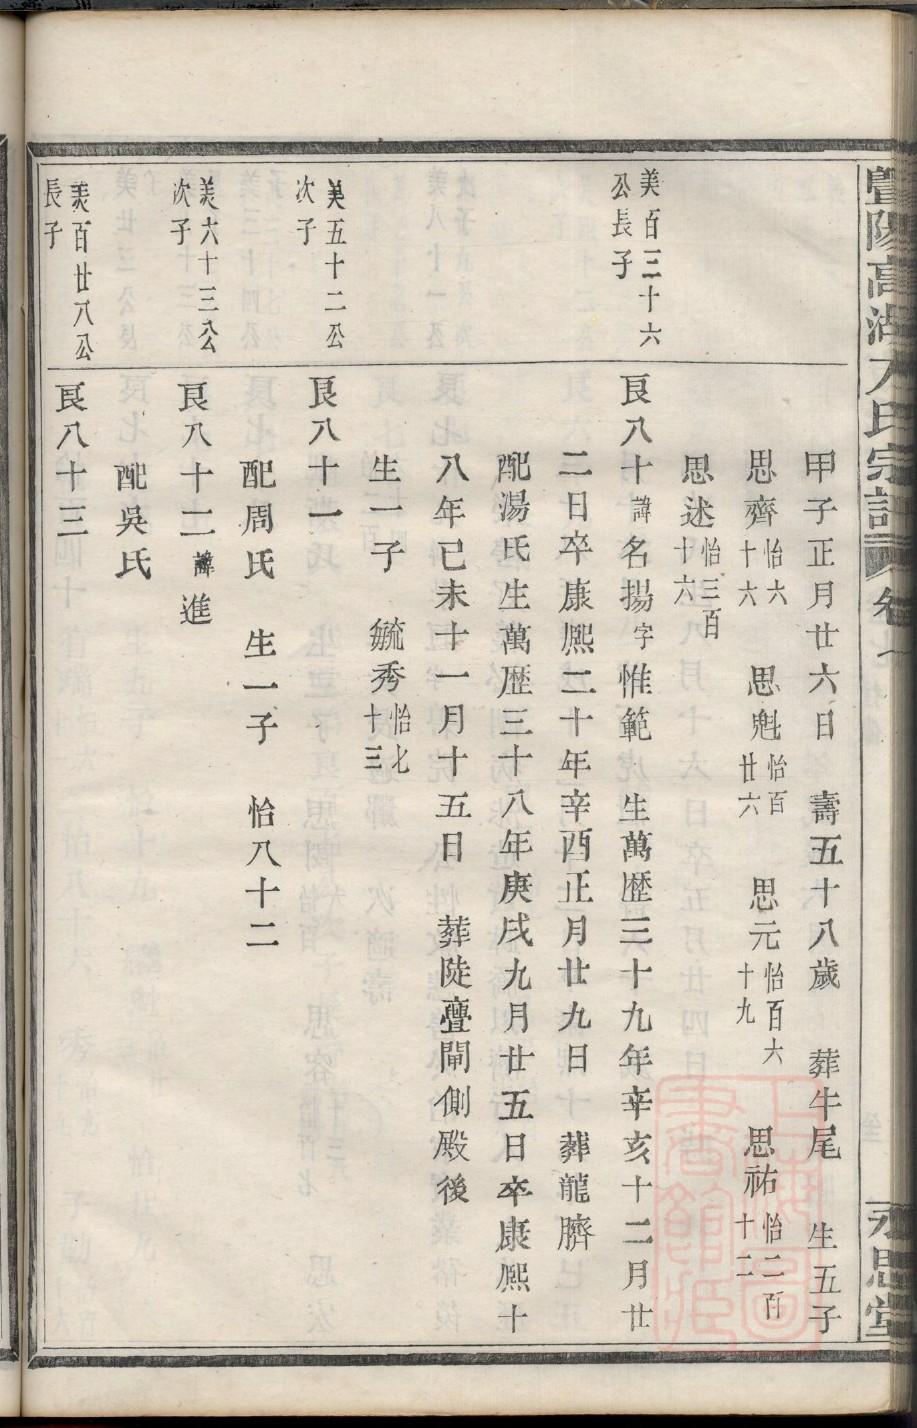 暨陽高湖方氏宗譜 卷七 永思堂
甲子正月廿六日 壽五十八歲 葬牛尾 生五子
思齊怡六十六 思魁怡百廿六 思元怡百六十九 思祐怡二百十二
思述怡三百十六
美百三十六公長子
良八十諱名揚字惟範 生萬歷三十九年辛亥十二月廿
二日卒康熙二十年辛酉正月廿九日 葬龍臍
配湯氏生萬歷三十八年庚戌九月廿五日卒康熙十
八年已未十一月十五日 葬陡亹閘側殿後
生一子 毓秀怡七十三
美五十二公次子
良八十一
配周氏 生一子 怡八十二
美六十三公次子
良八十二諱進
配吳氏
美百廿八公長子
良八十三